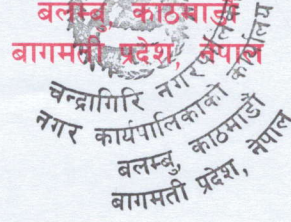 बलम्बु, काठमाडौं
बागमती प्रदेश, नेपाल
चन्द्रागिरि नगरपालिका
नगर कार्यपालिकाको कार्यालय
बलम्बु, काठमाडौं
बागमती प्रदेश, नेपाल